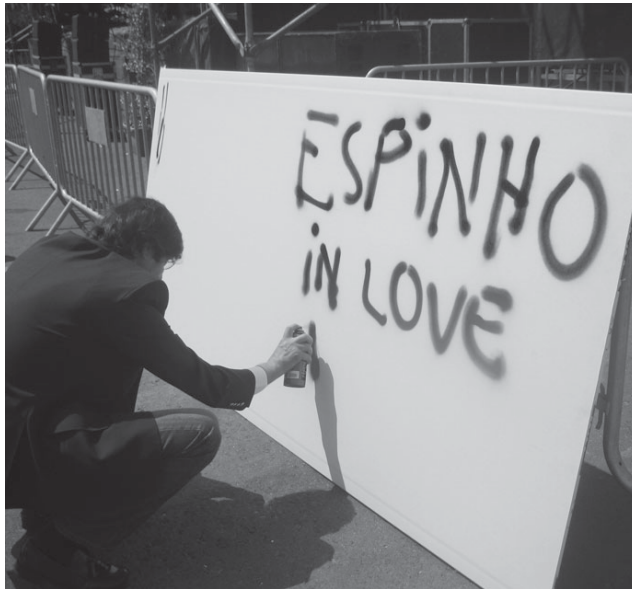 ESPiNHO
iN LOVE